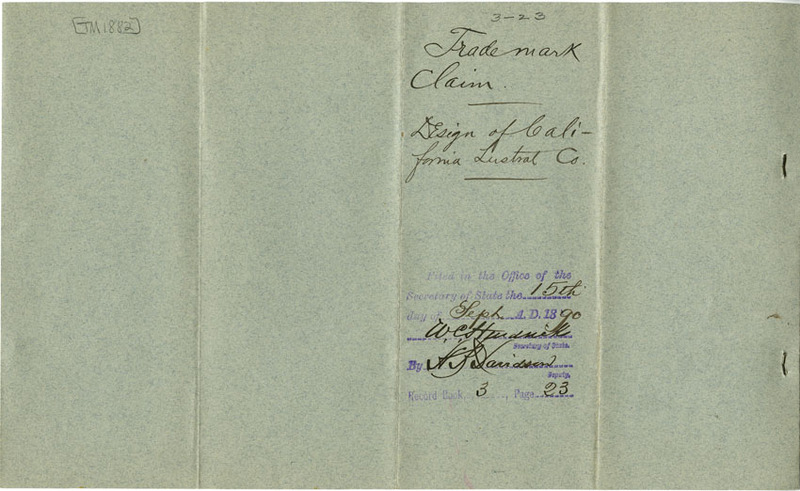 [TM1882]
3-23
Trademark
Claim.
Design of Cali-
fornia Lustral Co.
Filed in the Office of the
Secretary of State the 15th
day of Sept. A.D. 1890
W.C. Hendricks
Secretary of State.
By Davidson
Deputy.
Record Book, 3, Page 23